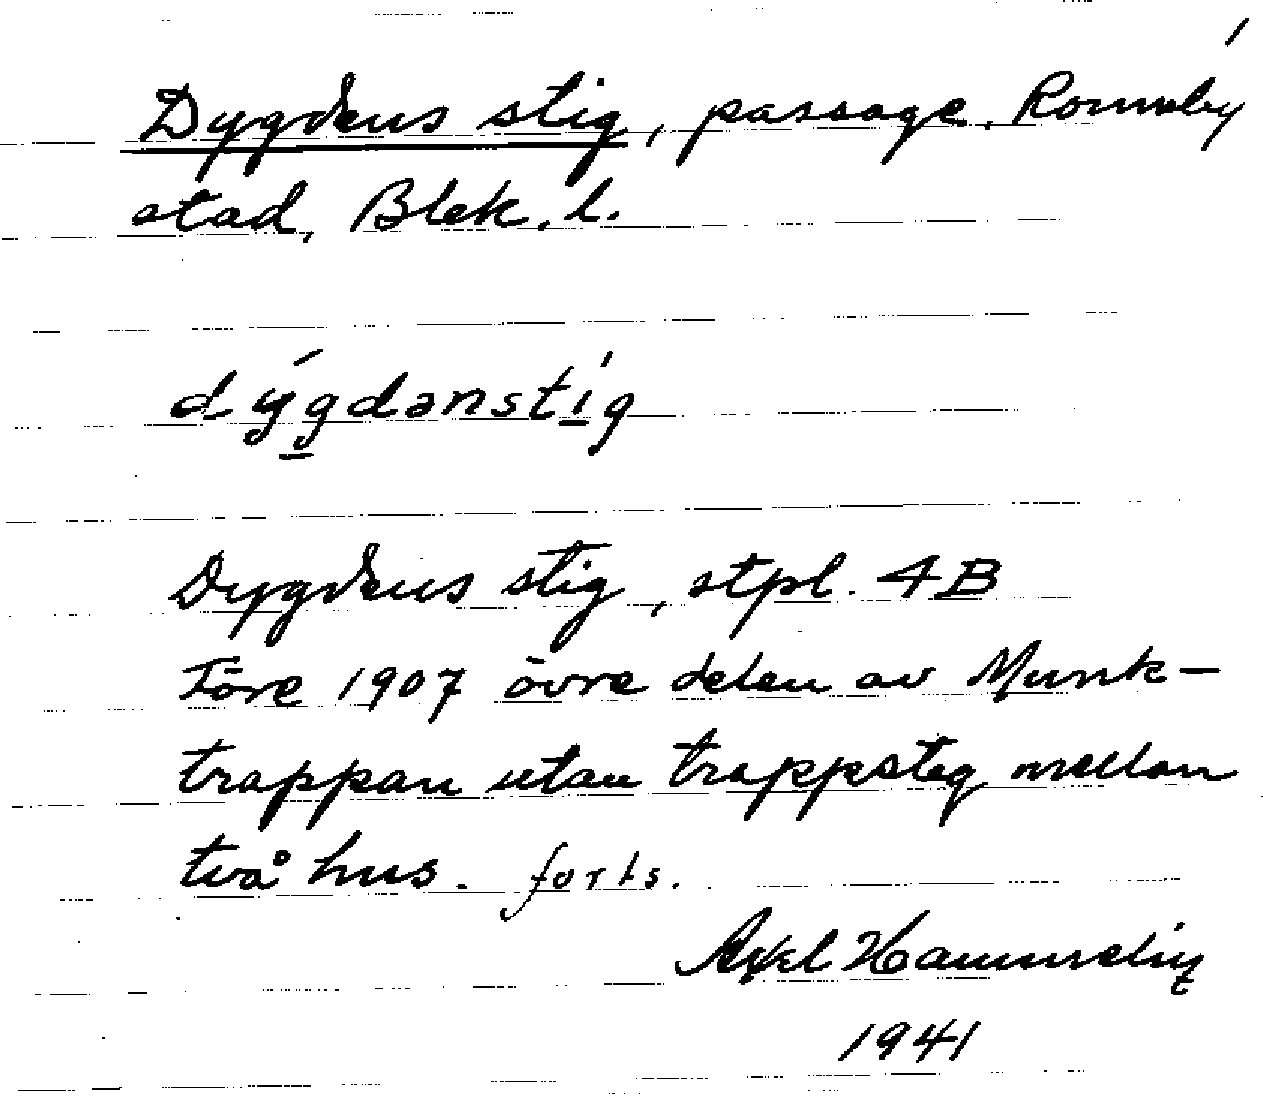 Dygdens stig, passage, Ronneby
stad, Blek. l.
dý́gdənstíg
Dygdens stig, stpl. 4B
Före 1907 övre delen av Munk-
trappan utan trappsteg mellan
två hus. forts.
Axel
1941